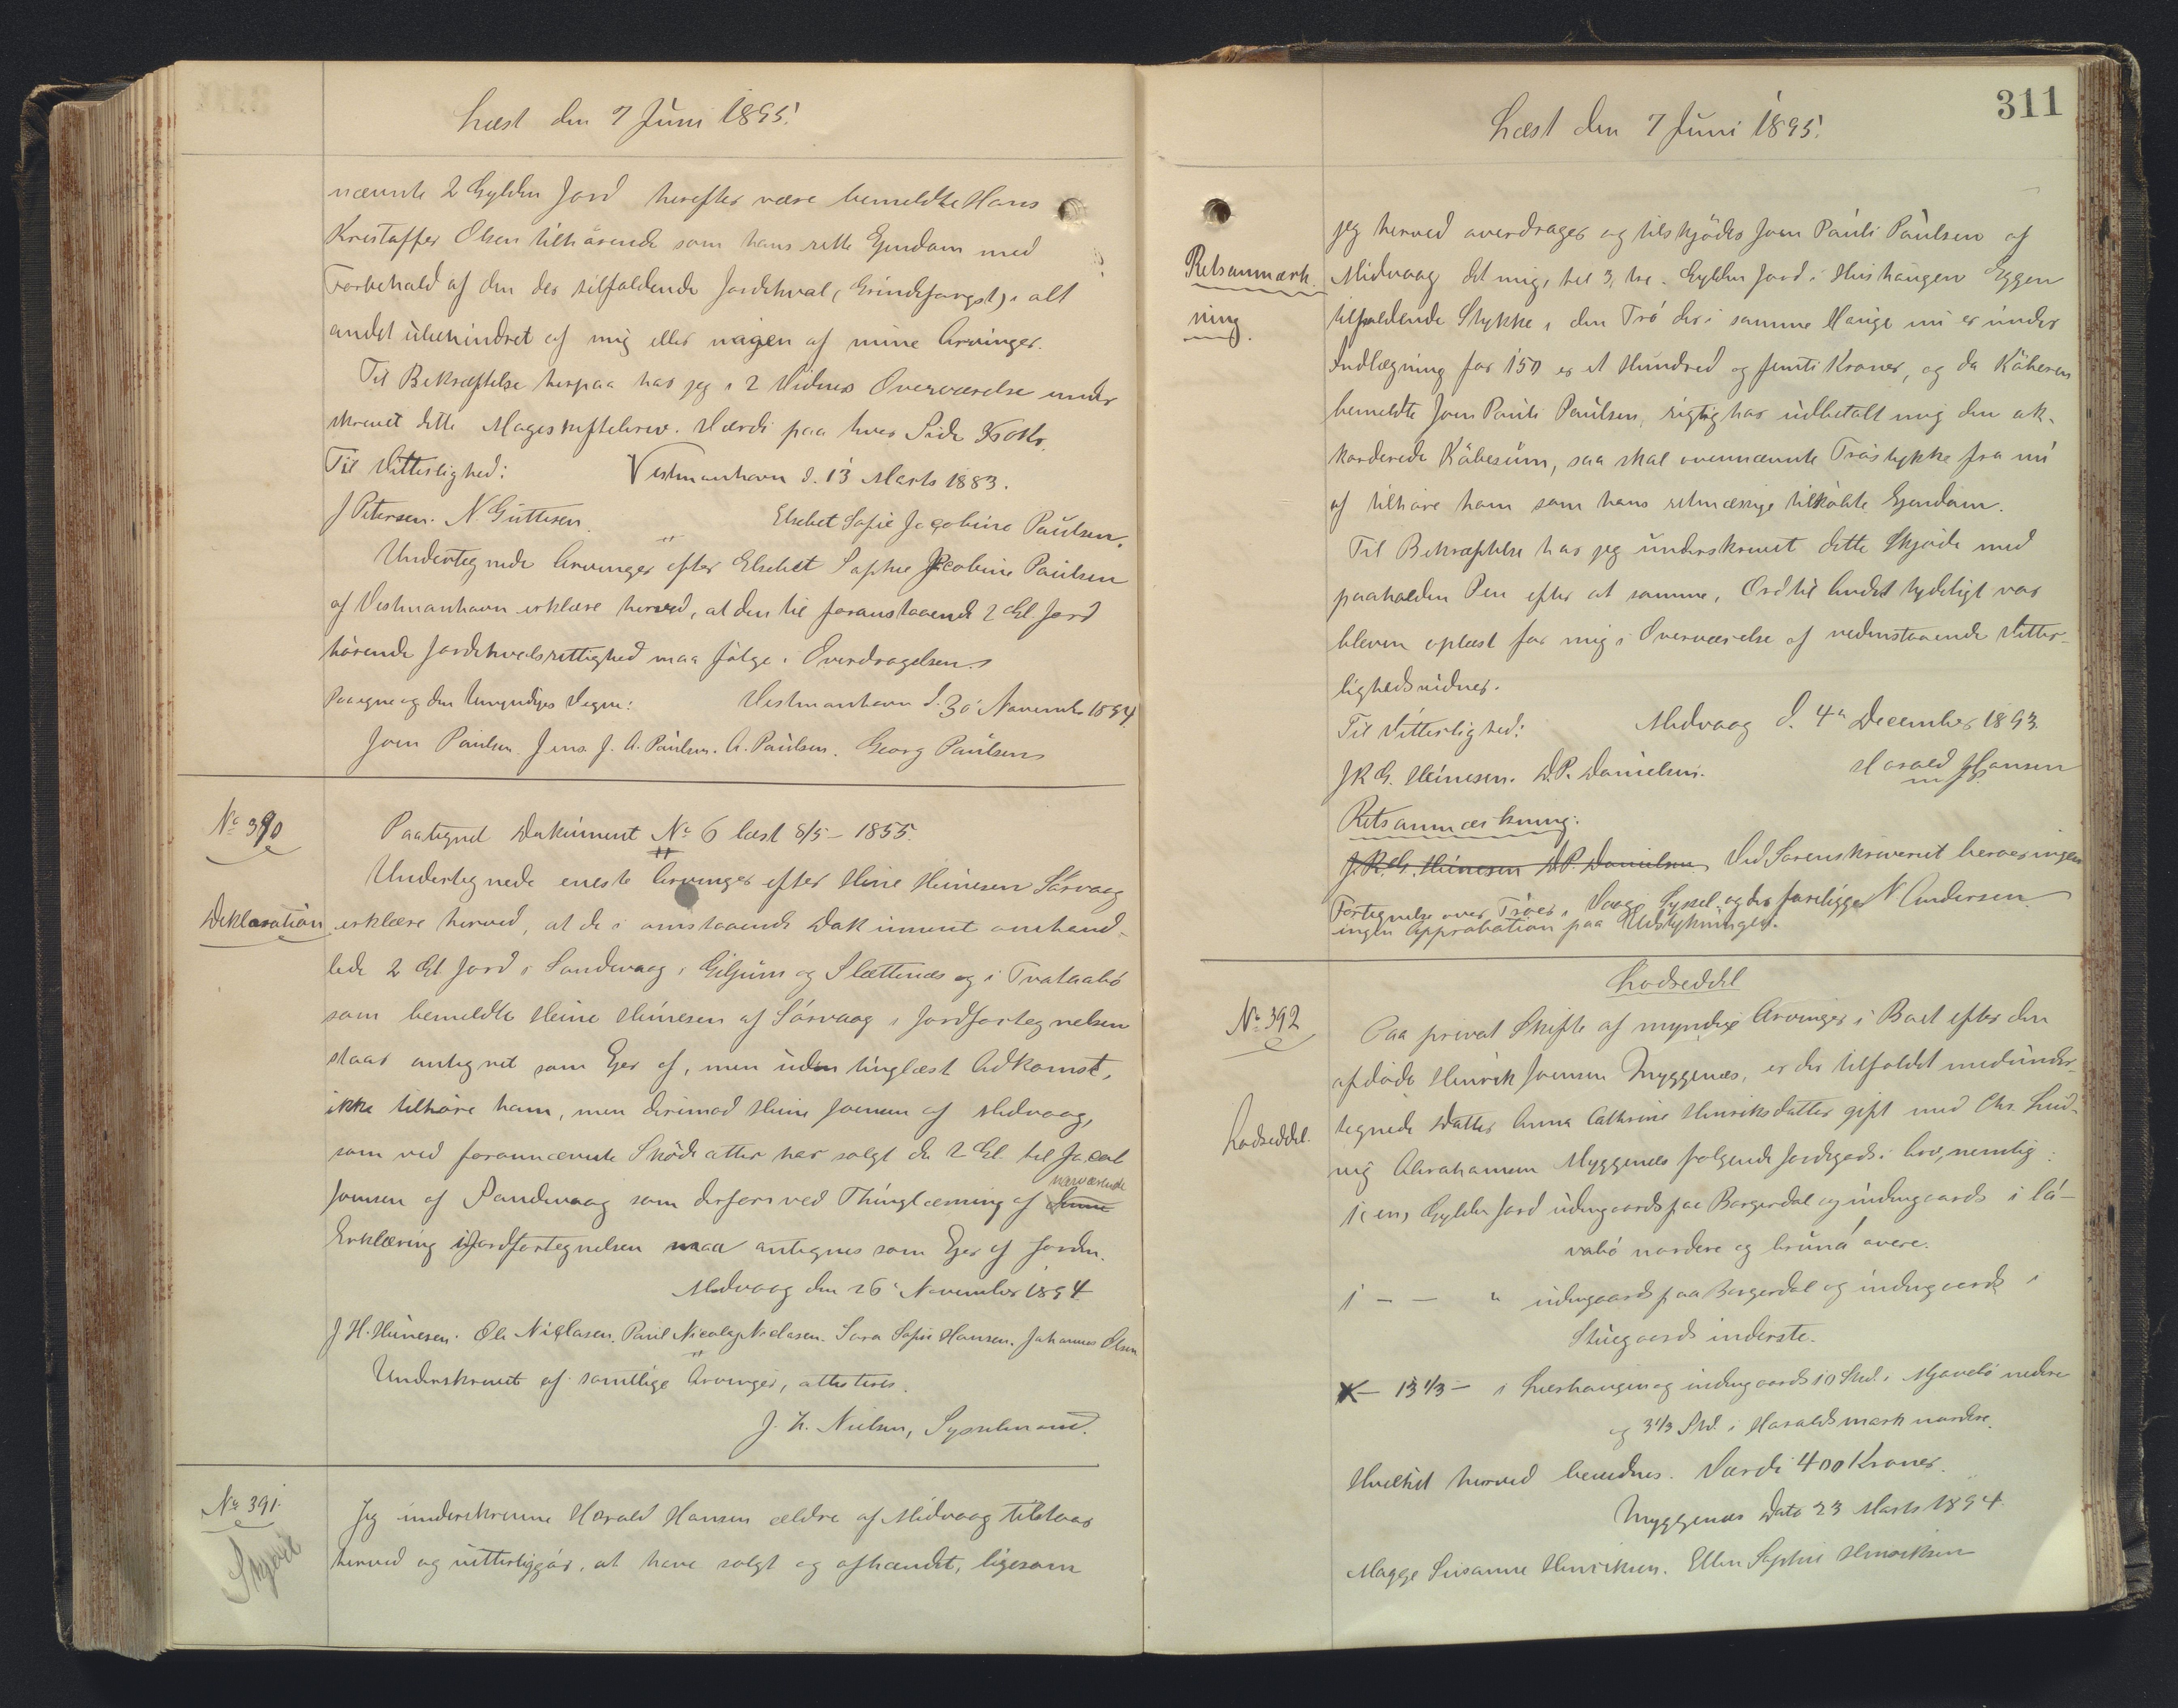 Læst den 7 Juni 1895.
nævnte 2 Gylden Jord herefter være bemeldte Hans
Kristoffer Olsen tilhörende som hans rette Ejendom med
Forbehold af den der tilfaldende Jordehval (Grindefangst), i alt
andet ubehindret af mig eller nógen af mine Arvinger.
Til Bekræftelse herpaa har jeg i 2 Vidners Overværelse under
skrevet dette Mageskiftebrev. Værdi paa hver Side
Til Vitterlighed: Vestmanhavn d. 13 Marts 1883.
J Petersen. N. Guttesen. Elsebet Sofie Jacobine Paulsen.
Undertegnede Arvinger efter Elsebet Sophie Jacobine Paulsen
af Vestmanhavn erklære herved, at den til foranstaaende 2 Gl. Jord
hörende Jordehvalsrettighed maa fölge i Overdragelsen.
Paa egne og den Umyndiges Vegne: Vestmanhavn d. 30 November 1894
Joen Paulsen. Jens J. A. Paulsen. A. Paulsen. Georg Paulsen
No 390
Paategnet Dokument No 6 læst 8/5 - 1855.
Undertegnede eneste Arvinger efter Heine Heinesen Sörvaag
Deklaration erklære herved, at de i omstaaende Dokument omhand-
lede 2 Gl. Jord i Sandevaag, i Giljum og Slættenæs og i Tvataabö
som bemeldte Heine Heinesen af Sörvaag i Jordfortegnelsen
staar antegnet som Ejer af, men uden tinglæst Adkomst,
ikke tilhöre ham, men derimod Heine Joensen af Midvaag,
som ved forannævnte Sköde atter har solgt de 2 Gl. til Jacob
Joensen af Sandevaag som derfor ved Thinglæsning af nærværende
Erklæring i Jordfortegnelsen maa antegnes som Ejer af Jorden.
Midvaag den 26 November 1894
J. H. Heinesen. Ole Niclasen. Paul Nicolaj Niclasen. Sara Sofie Hansen. Johannes Olsen
Underskrevet af samtlige Arvinger, attesteres.
J. H. Nielsen, Sysselmand.
No 391.
Skjöde
Jeg underskrevne Harald Hansen ældre af Midvaag tilstaar
herved og vitterliggör, at have solgt og afhændet, ligesom
311
Læst den 7 Juni 1895.
jeg herved overdrager og tilskjöder Joen Pauli Paulsen af
Retsanmærk- Midvaag det mig, til 3, tre - Gylden Jord i Hushaugen Eggen
ning. tilfaldende Stykke i den Trö der i samme Hauge nu er under
Indlægning for 150 er et Hundred og femti Kroner, og da Köberen
bemeldte Joen Pauli Paulsen, rigtig har udbetalt mig den ak-
korderede Köbesum, saa skal ovennævnte Tröstykke fra nu
af tilhöre ham som hans retmæssige tilköbte Ejendom.
Til Bekræftelse har jeg underskrevet dette Skjöde med
paaholden Pen efter at samme, Ord til andet tydeligt var
bleven oplæst for mig i Overværelse af nedenstaaende Vitter-
lighedsvidner.
Til Vitterlighed: Midvaag d. 4de December 1893.
J R G. Heinesen. D. P. Danielsen. Harald Hansen
m f P.
Retsanmærkning:
J. R. G. Heinesen D. P. Danielsen Ved Sorenskriveriet beroer ingen
Fortegnelse over Tröer i Vaagö Syssel og der foreligger N Andersen
ingen Approbation paa Udstykningen.
Lodseddel
No 392
Paa privat Skifte af myndige Arvinger i Boet efter den
afdöde Henrik Joensen Myggenæs, er der tilfaldet medunder-
Lodseddel. tegnede Datter Anna Cathrine Henriksdatter gift med Chr. Lud-
vig Abrahamsen Myggenæs følgende Jordegods i Arv, nemlig:
1 (en) Gylden Jord udengaards paa Borgardal og indengaards i lá-
vabö nordere og bruná overe.
1 - - " udengaards paa Borgardal og indengaards i
Stuegaards inderste.
- 13 1/3 - i Lusehaugen og indengaards 10 Skd. i Mjavabö nedere
og 3 1/3 Skd. i Haraldsmark nordere.
Hvilket herved bevidnes. Værdi 400 Kroner.
Myggenæs Dato 23 Marts 1894.
Magge Susanne Henriksen. Ellen Sophie Henriksen